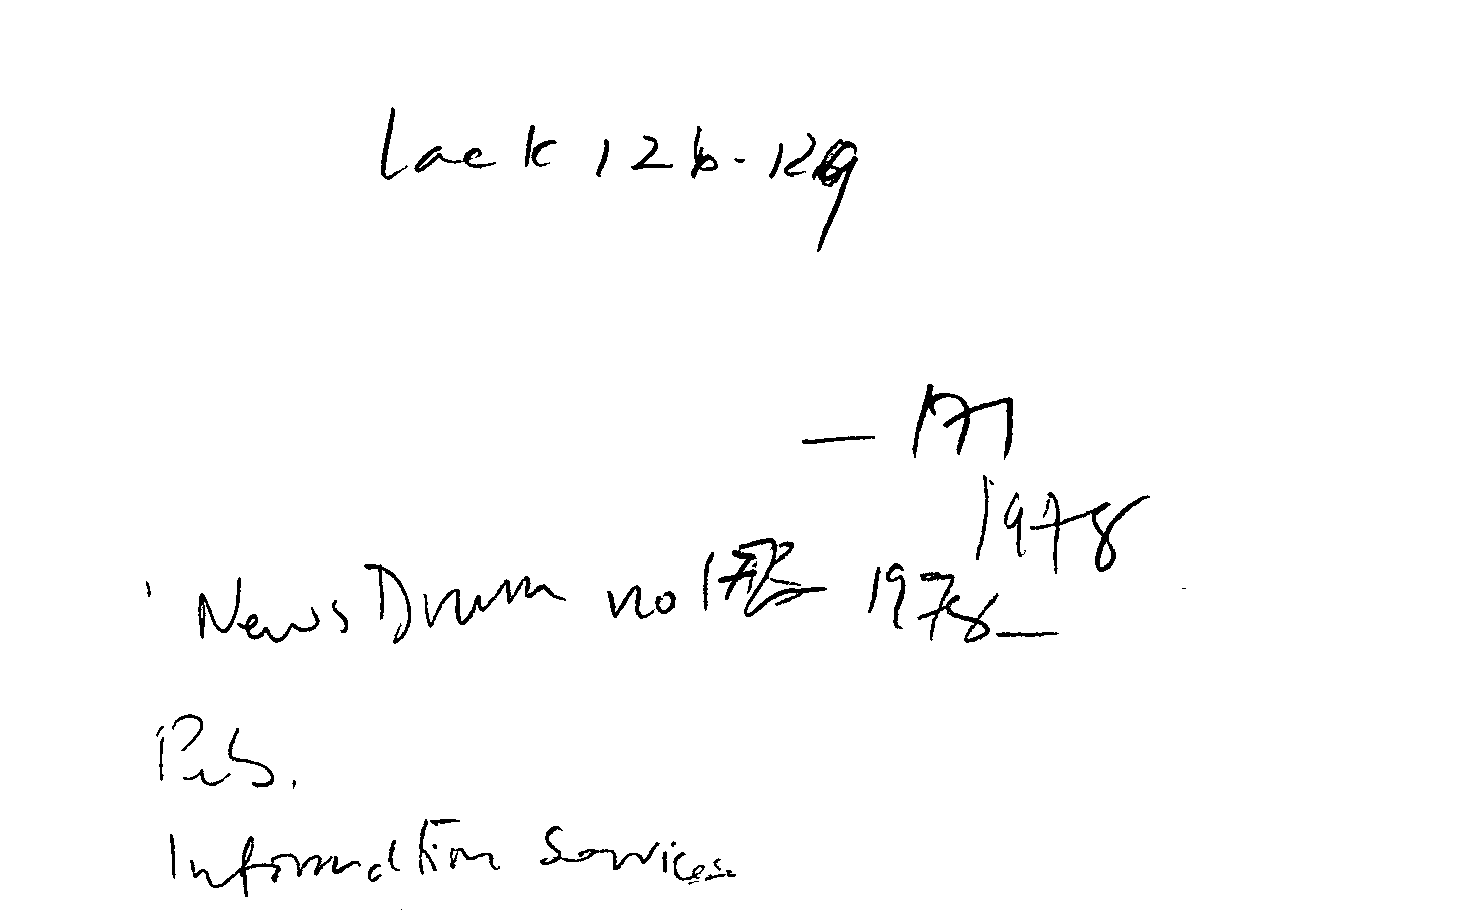 Lack 126-129
— 177
1978
'News Drum no 1978—
Pub.
Information Services